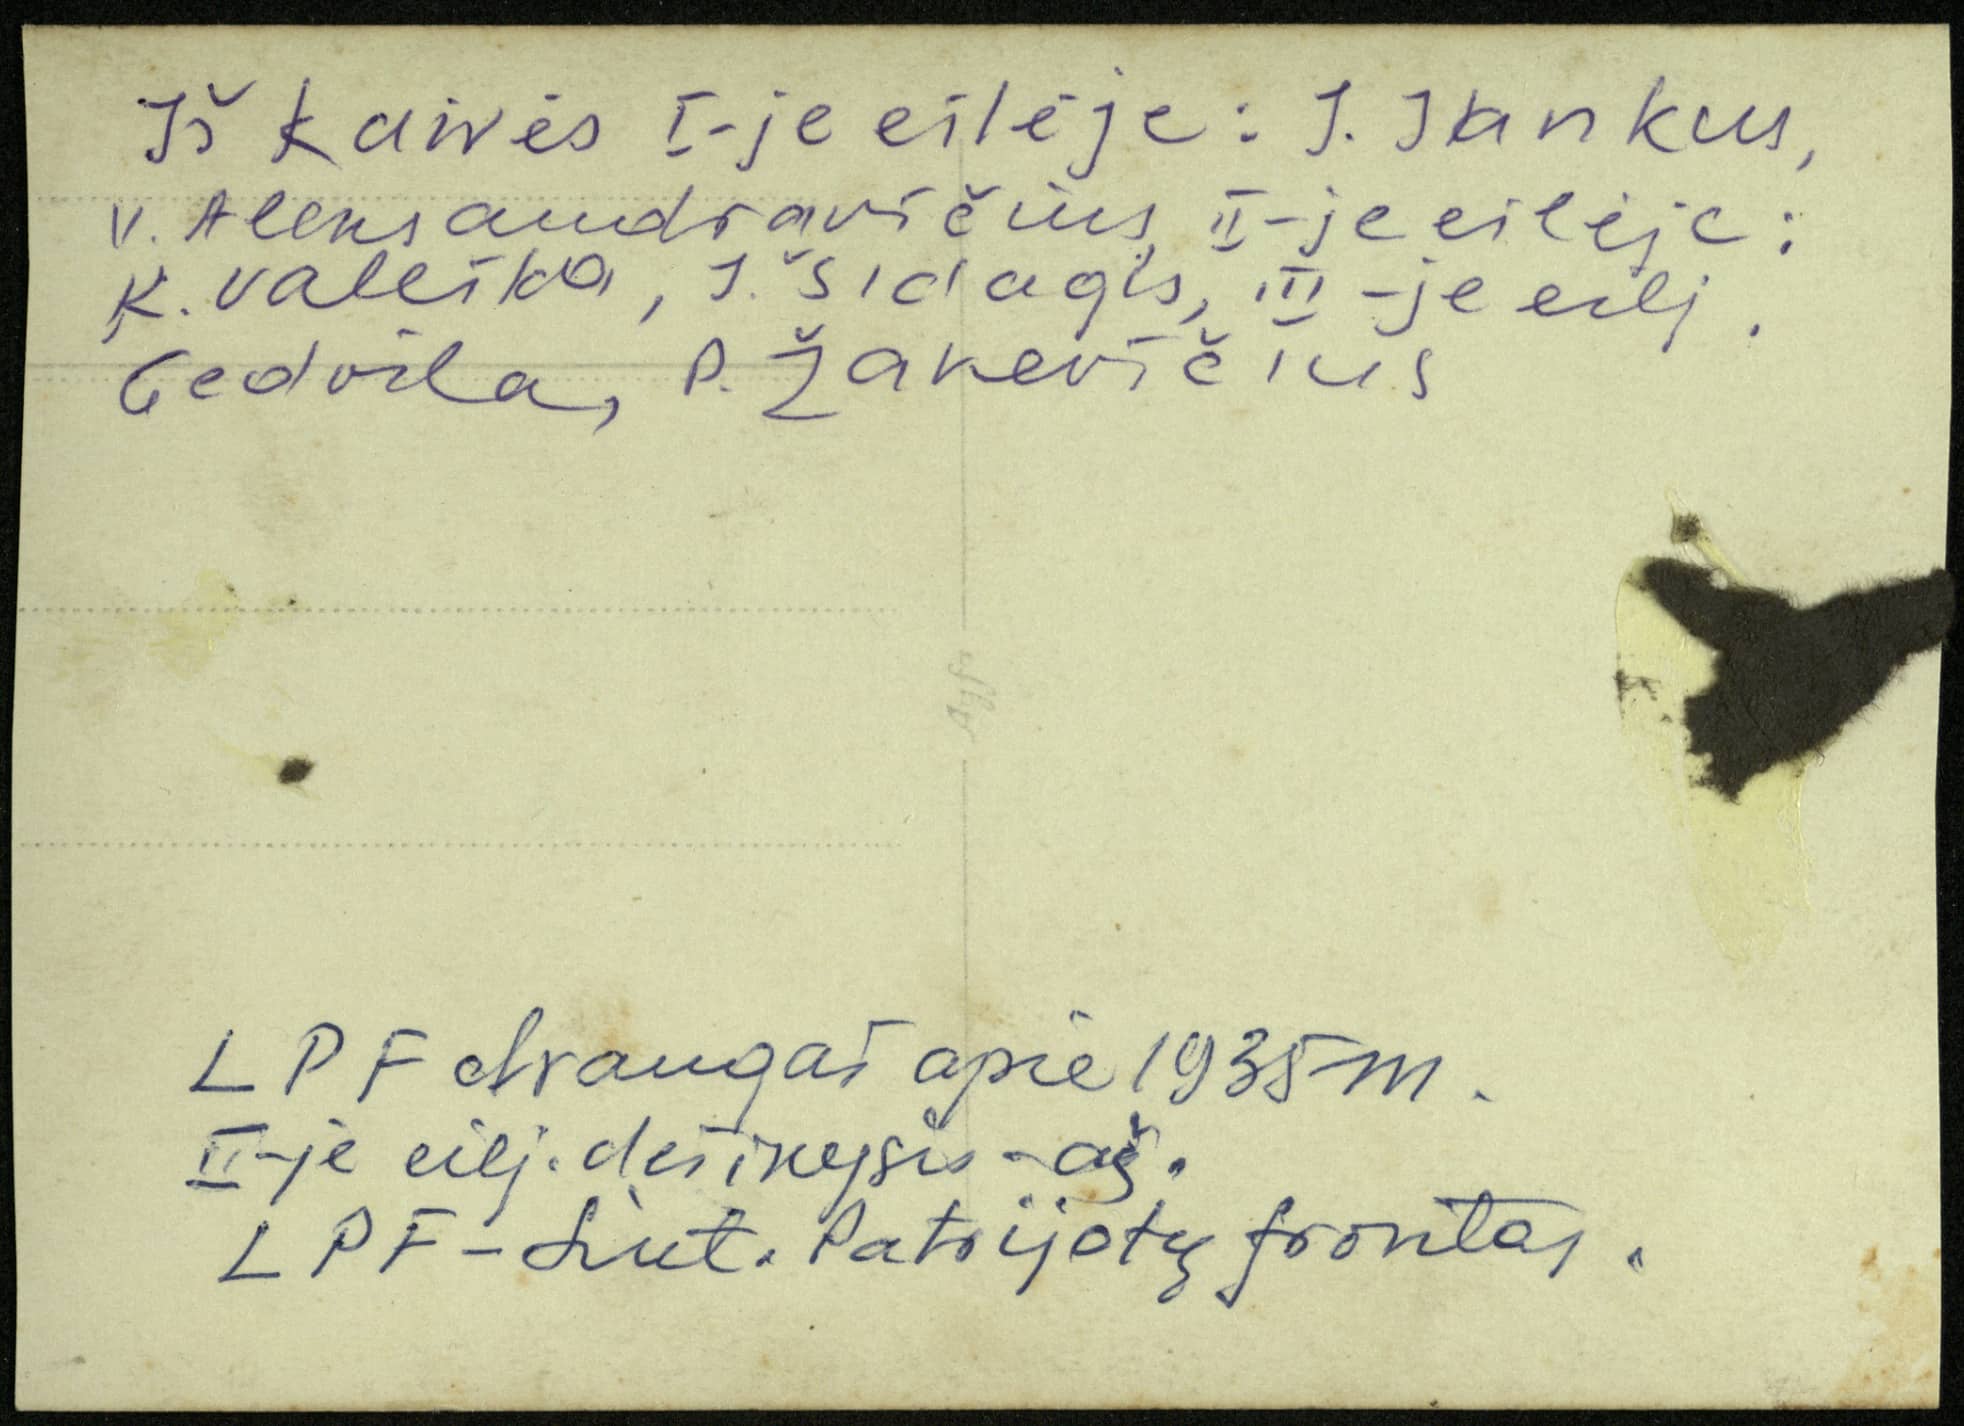 Iš kairės I-je eilėje: J. Jankus,
V. Aleksandravičius, II-je eilėje:
K. Valeika, J. Šidagis, III-je eilj.
Gedvila, P. Žakevičius
Agfa
LPF draugai apie 1935 m.
II-je eilj. dešinysis - aš.
LPF - Liet. Patrijotų frontas.